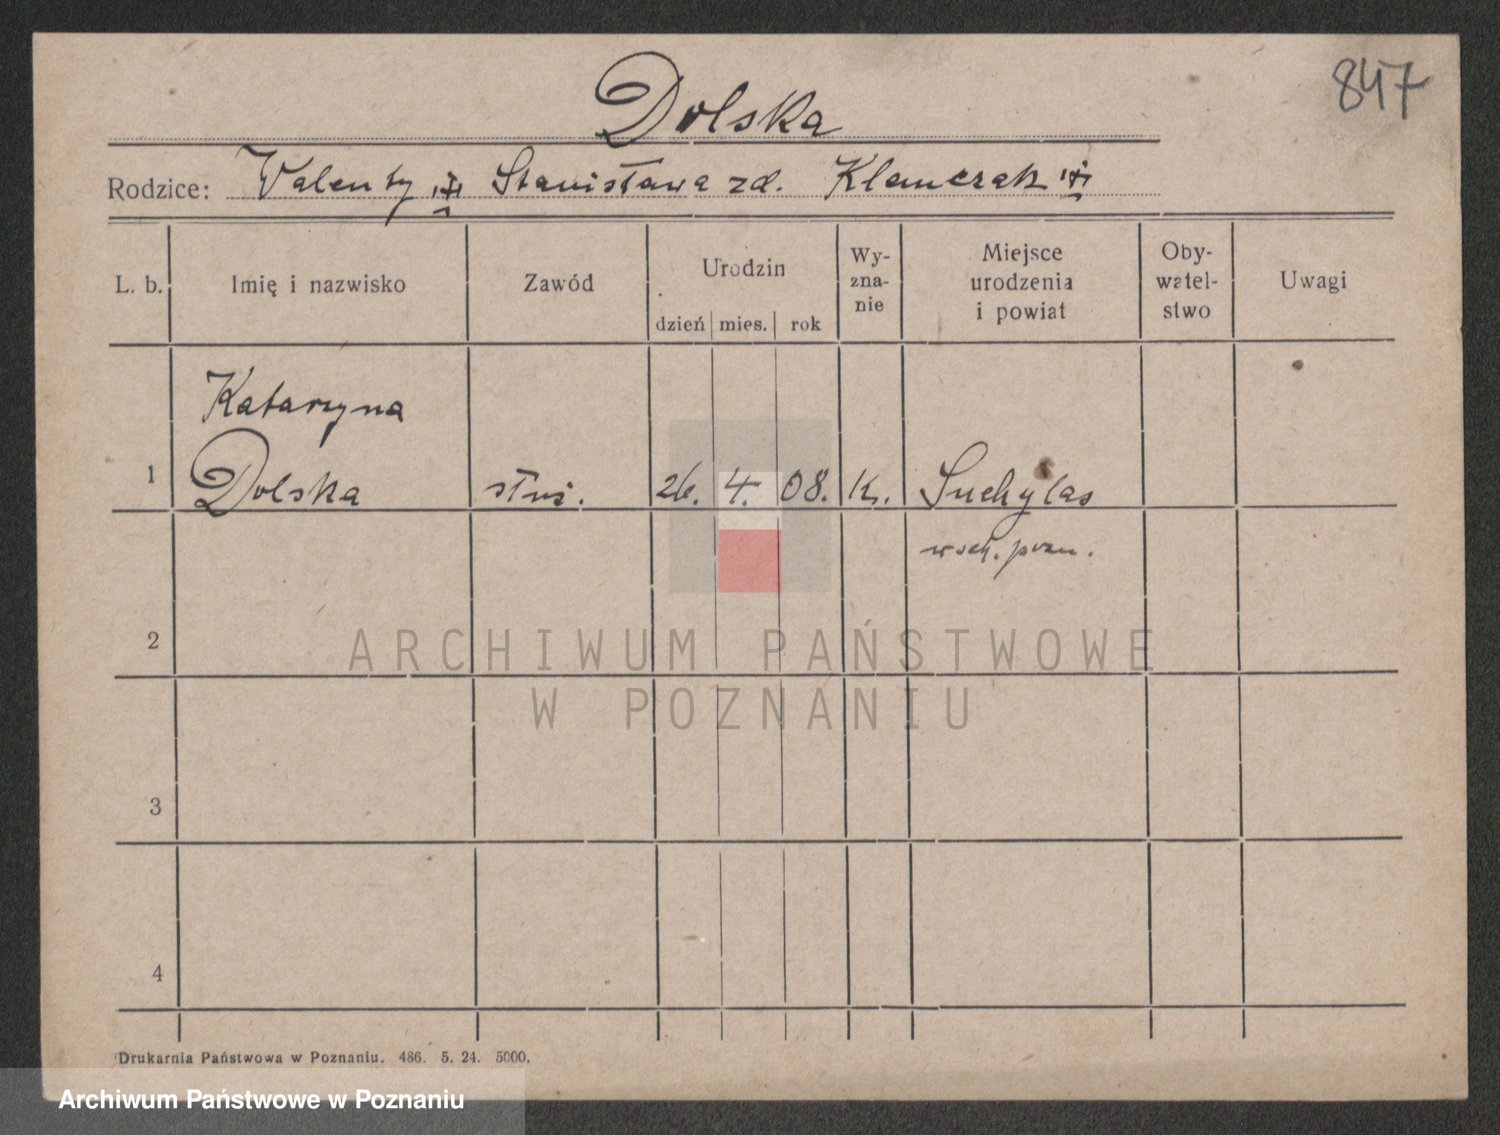 847
Dolska
Rodzice: Walenty Stanisława zd. Klamczak
L. b. Imię i nazwisko Zawód Urodzin Wy-zna-nie Miejsce urodzenia i powiat Oby-watel-stwo Uwagi
dzień mies. rok
Katarzyna
1 Dolska służ. 26. 4. 08. k. Suchylas
wsch. pozn.
2
ARCHIWUM PAŃSTWOWE
W POZNANIU
3
4
Drukarnia Państwowa w Poznaniu. 486. 5. 24. 5000.
Archiwum Państwowe w Poznaniu